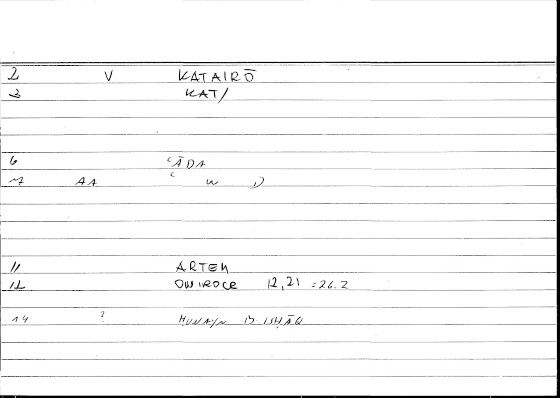 2 V KATAIRŌ
3 KAT/
6 ʿĀDA
7 AA ʿ w D
11 ARTEM
12 ONIROCR 12,21 = 26.2
14 ? ḤUNAYN B ISḤĀQ